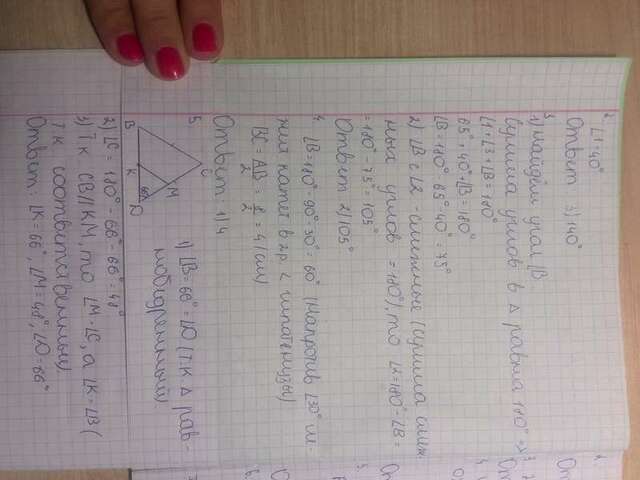 2. ∠1=40°
Ответ 3)140°
3.
1) найдём угол ∠B
Сумма углов в Δ равна 180° =>
∠1+∠3+∠B=180°
65°+40°+∠B=180°
∠B=180°-65°-40°=75°
2) ∠B и ∠2 - смежные (сумма смеж-
ных углов =180°), то ∠2=180°-∠B=
=180°-75°=105°
Ответ 2)105°
4. ∠B=180°-90°-30°=60° (Напротив ∠30° ле-
жит катет в 2р < гипотенузы)
BC=AB/2=8/2=4(см)
Ответ: 1)4
5.
B K D M C 66°
1) ∠B=66°=∠D (т.к Δ рав-
нобедренный)
2) ∠C=180°-66°-66°=48°
3) Т.к CB∥KM, то ∠M=∠C, а ∠K=∠B (
т.к соответственные)
Ответ: ∠K=66°, ∠M=48°, ∠D=66°